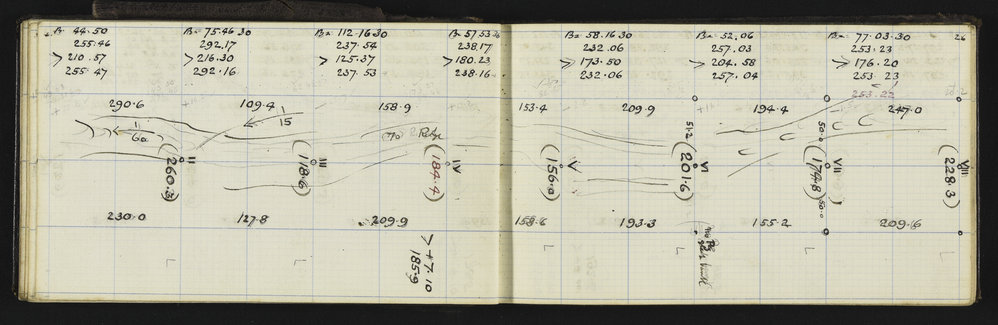 44.50
255.46
> 210.57
255.47
75.46 30
292.17
> 216.30
292.16
112.16.30
237.54
> 125.37
237.53
57.53
238.17
> 180.23
238.16
58.16.30
232.06
> 173.50
232.06
52.06
257.03
> 204.58
257.04
77.03.30
253.23
> 176.20
253.23
253.22
26
290.6
109.4
158.9
153.4
209.9
194.4
247.0
1/60
1/15
II
(260.3)
III
(118.6)
IV
(184.4)
V
(156.0)
51.2
VI
(201.6)
50.0
VII
(174.8)
50.0
VIII
(228.3)
230.0
127.8
209.9
158.6
193.3
155.2
209.6
> +7.10
185.9
L
L
L
L
L
L